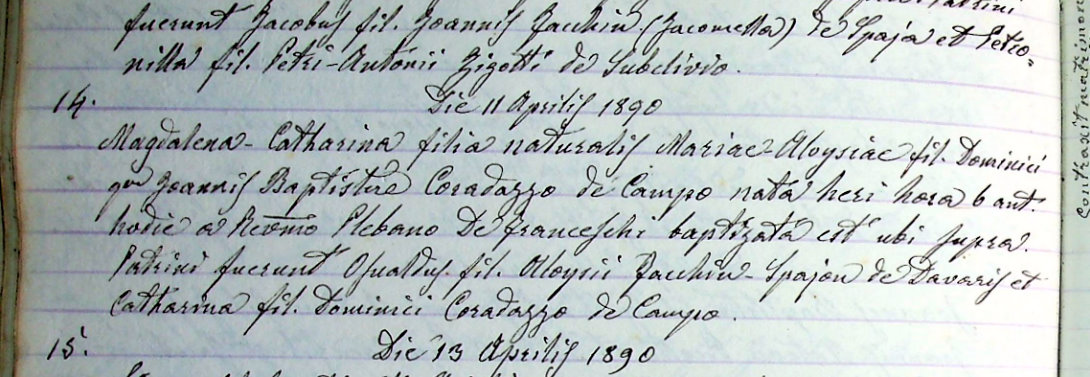 fuerunt Jacobus fil. Joannis Zacchin (Jacomella) de Spaja et Petro=
nilla fil. Petri-Antonii Zigotti de Subclivio.
14. Die 11 Aprilis 1890
Magdalena-Catharina filia naturalis Mariae-Aloysiae fil. Dominici
qm Joannis Baptistae Coradazzo de Campo nata heri hora 6 ant.
hodie a Revmo Plebano De Franceschi baptizata est ubi supra.
Patrini fuerunt Osualdus fil. Aloysii Zacchin-Spajon de Davaris et
Catharina fil. Dominici Coradazzo de Campo.
15. Die 13 Aprilis 1890